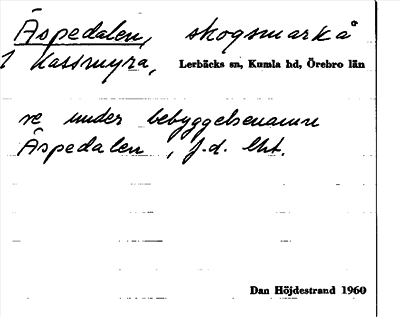 Äspedalen, skogsmark å
1 Kassmyra, Lerbäcks sn, Kumla hd, Örebro län
se under bebyggelsenamn
Äspedalen, f.d. lht.
Dan Höjdestrand 1960